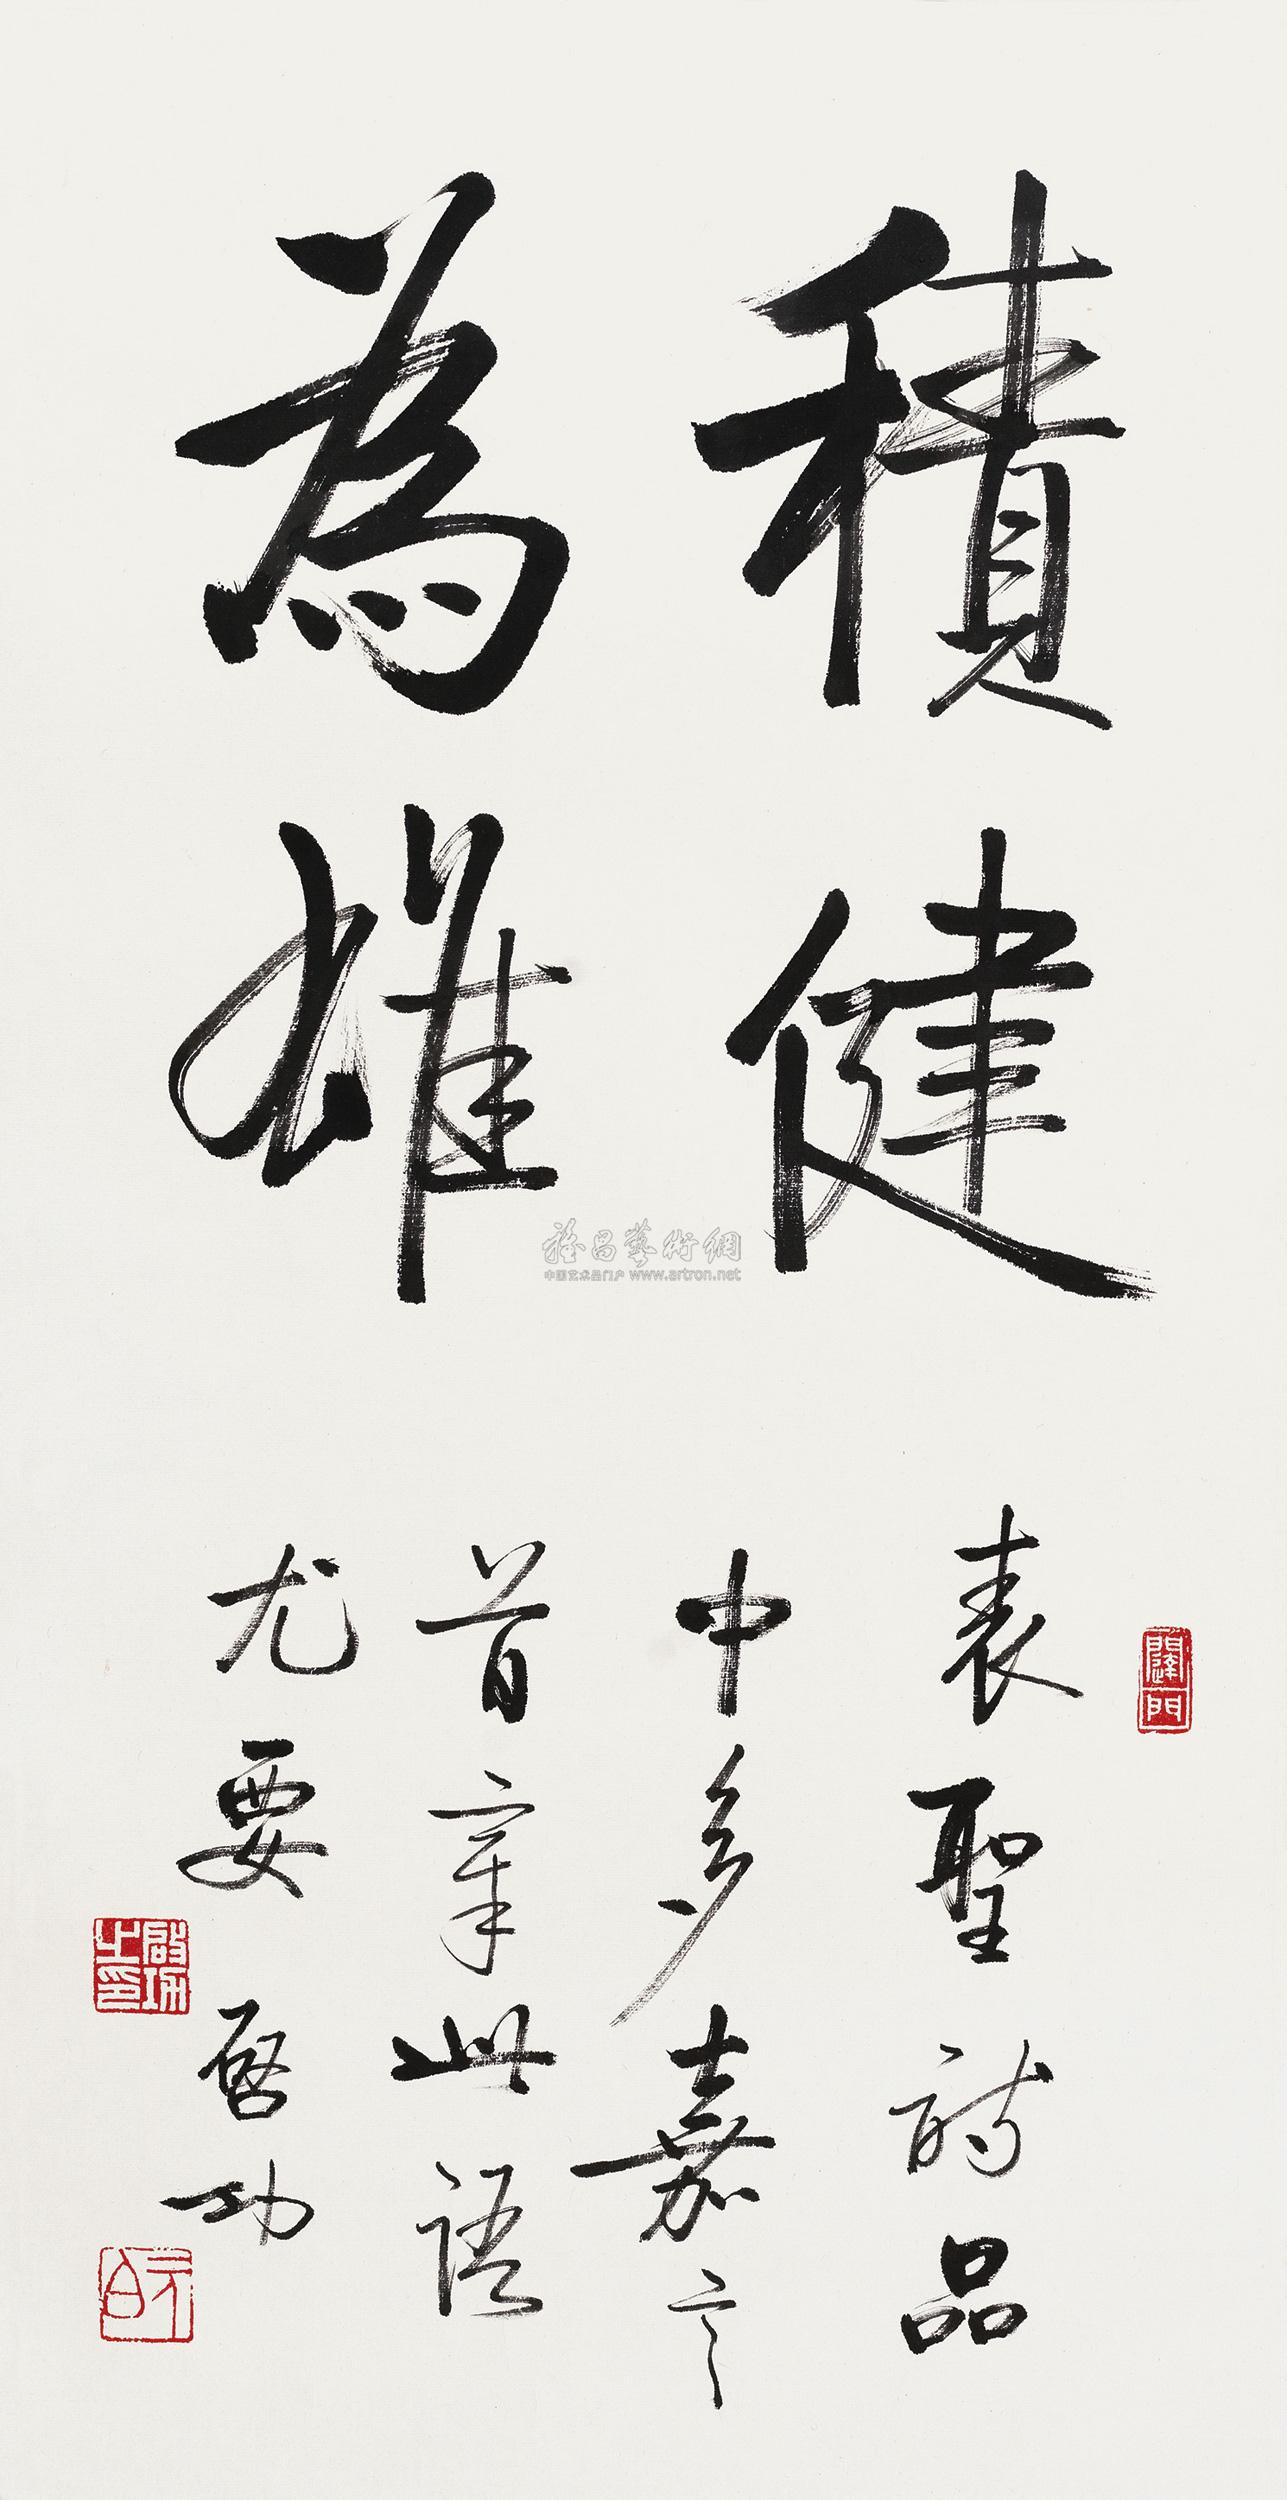 積健
為雄
表聖詩品
中多嘉言
首章此語
尤要 启功
啟功之印
元白
雅昌藝術網
中国艺术品门户 www.artron.net